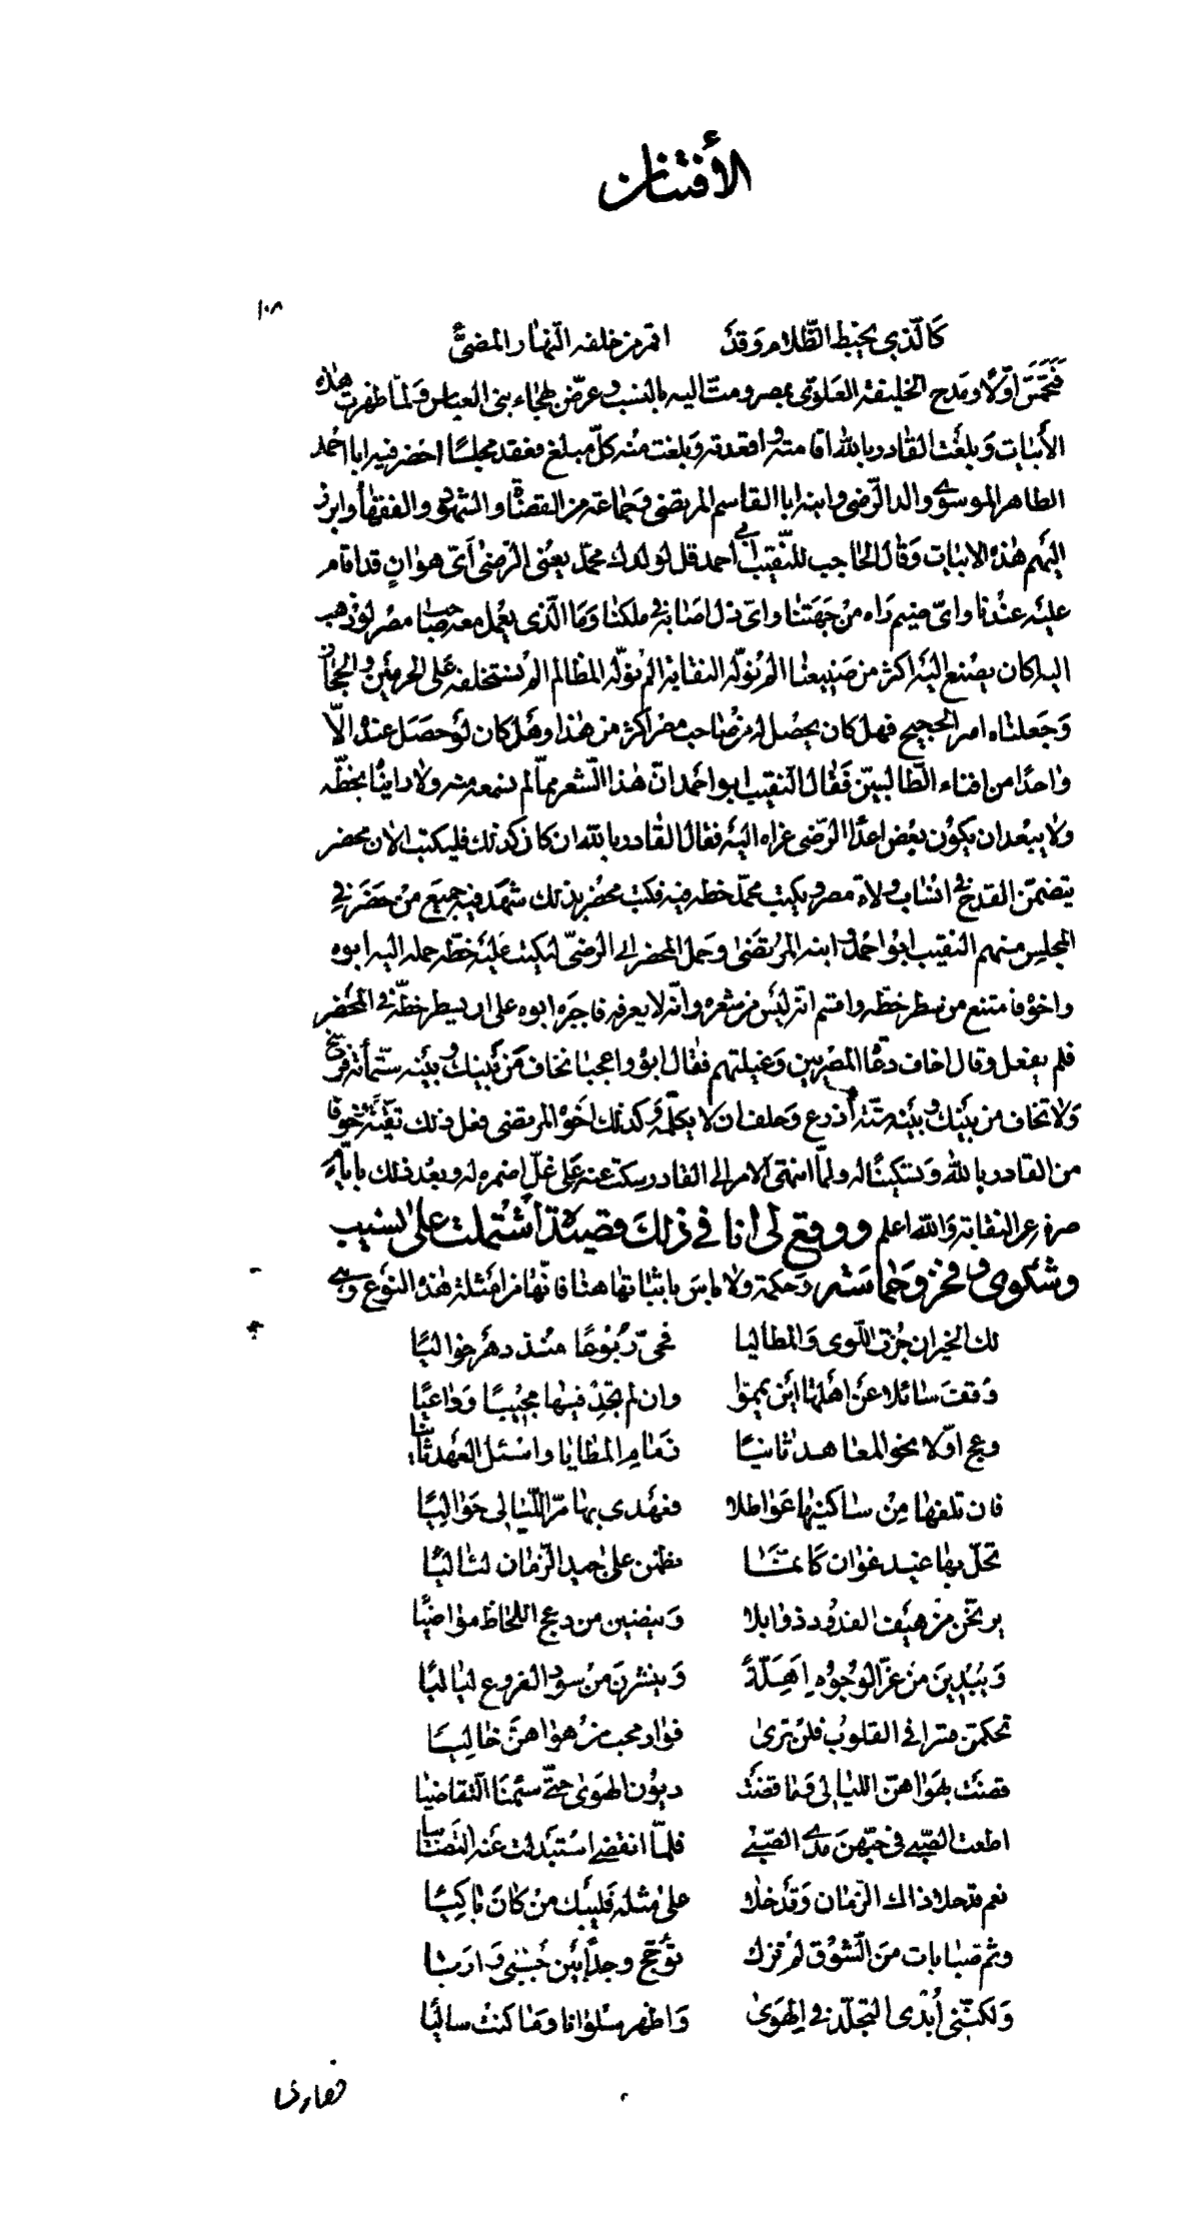 الأفتنان
١٠٨
كَالّذي يخبط الظّلام وَقدْ اقمر من خلفه النّهار المضيُّ
فتحمّس اوّلًا ومدح الخليفة العَلويّ بمصر ومتّ اليه بالنسب وعرّض بهجاء بني العباس وَلمّا ظهرت هذه
الأبيات وَبلغت القادر بالله اقامته واقعدته وَبلغت منه كلّ مبلغ فعقد مجلسًا احضر فيه ابا احمد
الطاهر الموسوي والد الرّضي وابنه ابا القاسم المرتضى وَجماعة من القضاة والشهود والفقهاء وابرز
اليهم هذه الابيات وَقال الحاجب للنّقيب ابي احمد قل لولدك محمّد يعني الرّضي أيّ هوانٍ قد اقام
عليه عندنا وايّ ضيم رَاه منْ جهتنا وايّ ذل اصابه في ملكنا وَمَا الّذي يعمل معه صاحب مصر لو ذهب
اليه كان يصنع اليه اكثر من صنيعنا الم نولّه النقابة الم نولّه المظالم الم نستخلفه على الحرمين والحجاز
وَجعلناه امير الحجيج فهل كان يحصل له من صاحب مصر اكثر من هذا وهل كان لو حصَل عنده الّا
واحدًا من افناء الطّالبيّين فقال النّقيب ابو احمد انّ هذا الشّعر ممّا لم نسمعه منه ولا رايناه بخطّه
ولا يبعد ان يكون بعض اعداء الرّضي عزاه اليه فقال القادر بالله ان كان كذلك فليكتب الان محضر
يتضمّن القدح في انساب ولاة مصر ويكتب محمّد خطه فيه فكتب محضر بذلك شهد فيه جميع من حضَر في
المجلس منهم النقيب ابو احمد وابنه المرتضى وحمل المحضر الى الرّضيّ ليكتب عليه خطّه حمله اليه ابوه
واخوه فامتنع من سطر خطّه واقسم انّه ليس من شعره وانّه لا يعرفه فاجبره ابوه على ان يسطر خطّه في المحضر
فلم يفعل وقال اخاف دعاة المصريين وَغيلتهم فقال ابوه واعجبا تخاف من بينك وبينه ستّمأة فرسخ
وَلا تخاف من بينك وبينه ستّة أذرع وَحلف ان لا يكلّمه وكذلك اخوه المرتضى فعل ذلك تقيّة وخوفا
من القادر بالله وَتسكينًا له ولمّا انتهى الامر الى القادر سكت عنه على غلّ اضمره له وبعد ذلك بايّام
صرفه عن النقابة وَالله اعلم ووقع لي انا في ذلك قصيدة اشتملت على نسيب
وشكوى وفخر وحماسة وحكمة ولا باس باثباتها هنا فانّها من امثلة هذا النوع وهي
لك الخير ان جُزت اللّوى وَالمطاليا فحيّ رُبُوعًا منذ دهر خواليًا
وَقف سائلا عن اهلها اين يمّموا وان لم تجد فيها مجيبًا وَداعيًا
وعج اوّلا نحو المعاهد ثانيًا زمام المطايا واسئل العهد ثانيا
فان تلفها مِنْ ساكنيها عَواطلا فعهدي بها مرّ اللّيالي حَواليًا
تحلّ بها غيد غوان كانّما نظمن على جيد الزّمان لئاليًا
يرنّحن من هيف القدود ذوابلا وَينضين من دعج اللحاظ مواضيًا
وَيُبدين من غرّ الوجوه اَهِلّةً وَينشرنَ من سود الفروع لياليًا
تحكمن قسرا في القلوب فلن ترى فؤاد محب من هواهنّ خاليًا
قضت بهواهنّ الليالي وَما قضت ديون الهوى حتّى سئمنا التقاضيا
اطعت الصّبى في حبّهنّ مدى الصّبى فلمّا انقضى استبدلت عنه التصابيا
نعم قد حلا ذاك الزّمان وَقد خلا على مثله فليبك من كان باكيًا
وثم صبابات من الشوق لم تزل تؤجّج وجدًا بين جنبيّ واريا
وَلكنّني أبدى التجلّد في الهوى وَاظهر سلوانا وما كنت ساليًا
قصارى